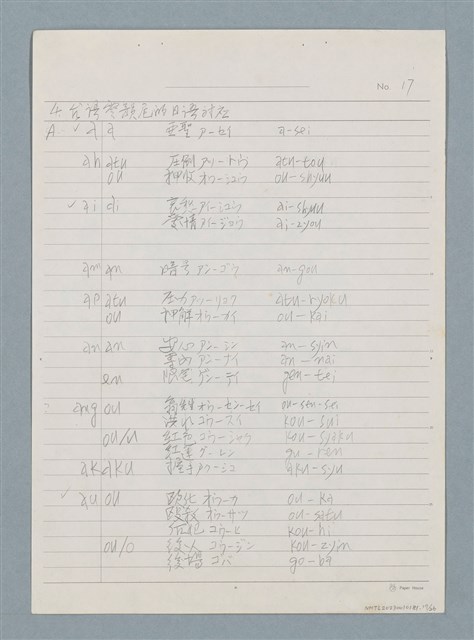 No. 17
4. 台語零韻尾的日語對应
A. ✓ a a 亜聖 アーセイ a-sei
ah atu 圧倒 アツートウ atu-tou
ou 押收 オウーシュウ ou-shyuu
✓ ai ai 哀愁 アイーシュウ ai-shyuu
愛情 アイージョウ ai-zyou
am an 暗号 アンーゴウ an-gou
ap atu 圧力 アツーリョク atu-ryoku
ou 押解 オウーカイ ou-kai
an an 安心 アンーシン an-syin
案内 アンーナイ an-nai
en 眼底 ガンーテイ gen-tei
ang ou オウーセンーセイ ou-sen-sei
洪水 コウースイ kou-sui
ou/u 紅色 コウーショク kou-syoku
紅蓮 グーレン gu-ren
ak aku 握手 アクーシュ aku-syu
✓ au ou 欧化 オウーカ ou-ka
殴殺 オウーサツ ou-satu
コウーヒ kou-hi
ou/o 後人 コウージン kou-zyin
後場 ゴバ go-ba